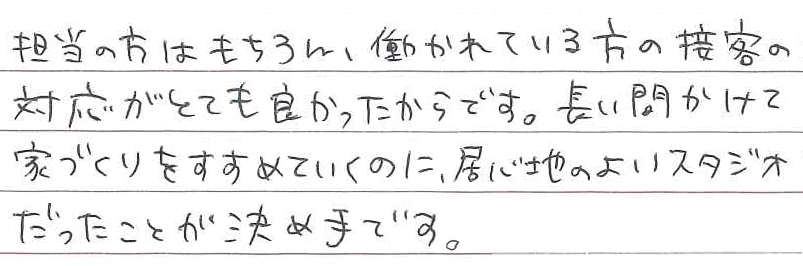 担当の方はもちろん、働かれている方の接客の
対応がとても良かったからです。長い間かけて
家づくりをすすめていくのに、居心地のよいスタジオ
だったことが決め手です。